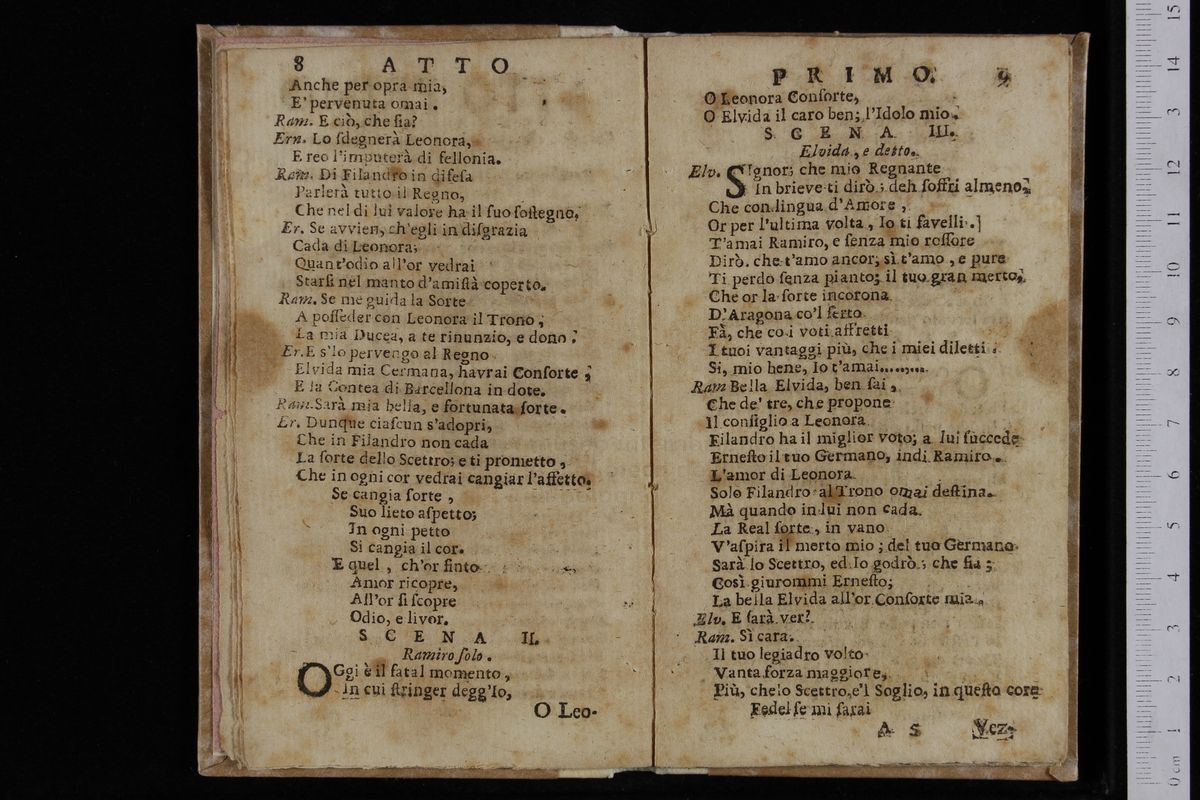 8 ATTO
Anche per opra mia,
E' pervenuta omai.
Ram. E ciò, che ſia?
Ern. Lo ſdegnerà Leonora,
E reo l'imputerà di fellonia.
Ram. Di Filandro in difeſa
Parlerà tutto il Regno,
Che nel di lui valore ha il ſuo ſoſtegno.
Er. Se avvien, ch'egli in diſgrazia
Cada di Leonora;
Quant'odio all'or vedrai
Starſi nel manto d'amiſtà coperto.
Ram. Se me guida la Sorte
A poſſeder con Leonora il Trono;
La mia Ducea, a te rinunzio, e dono.
Er. E s'Io pervengo al Regno
Elvida mia Cermana, havrai Conſorte;
E la Contea di Barcellona in dote.
Ram. Sarà mia bella, e fortunata ſorte.
Er. Dunque ciaſcun s'adopri,
Che in Filandro non cada
La ſorte dello Scettro; e ti prometto,
Che in ogni cor vedrai cangiar l'affetto.
Se cangia ſorte,
Suo lieto aſpetto;
In ogni petto
Si cangia il cor.
E quel, ch'or finto
Amor ricopre,
All'or ſi ſcopre
Odio, e livor.
SCENA II.
Ramiro ſolo.
OGgi è il fatal momento,
In cui ſtringer degg'Io,
O Leo-
PRIMO. 9
O Leonora Conſorte,
O Elvida il caro ben; l'Idolo mio.
SCENA III.
Elvida, e detto.
Elv. SIgnor; che mio Regnante
In brieve ti dirò; deh ſoffri almeno,
Che con lingua d'Amore,
Or per l'ultima volta, Io ti favelli.]
T'amai Ramiro, e ſenza mio roſſore
Dirò. che t'amo ancor; sì t'amo, e pure
Ti perdo ſenza pianto; il tuo gran merto,
Che or la ſorte incorona
D'Aragona co'l ſerto
Fà, che co i voti affretti
I tuoi vantaggi più, che i miei diletti.
Si, mio bene, Io t'amai.........
Ram Bella Elvida, ben ſai,
Che de' tre, che propone
Il conſiglio a Leonora
Filandro ha il miglior voto; a lui ſuccede
Erneſto il tuo Germano, indi Ramiro.
L'amor di Leonora
Solo Filandro al Trono omai deſtina.
Mà quando in lui non cada
La Real ſorte, in vano
V'aſpira il merto mio; del tuo Germano
Sarà lo Scettro, ed Io godrò; che ſia;
Così giurommi Erneſto;
La bella Elvida all'or Conſorte mia.
Elv. E ſarà ver?
Ram. Sì cara.
Il tuo legiadro volto
Vanta forza maggiore,
Più, che lo Scettro, e'l Soglio, in queſto core
Fedel ſe mi ſarai
A 5 Vez-